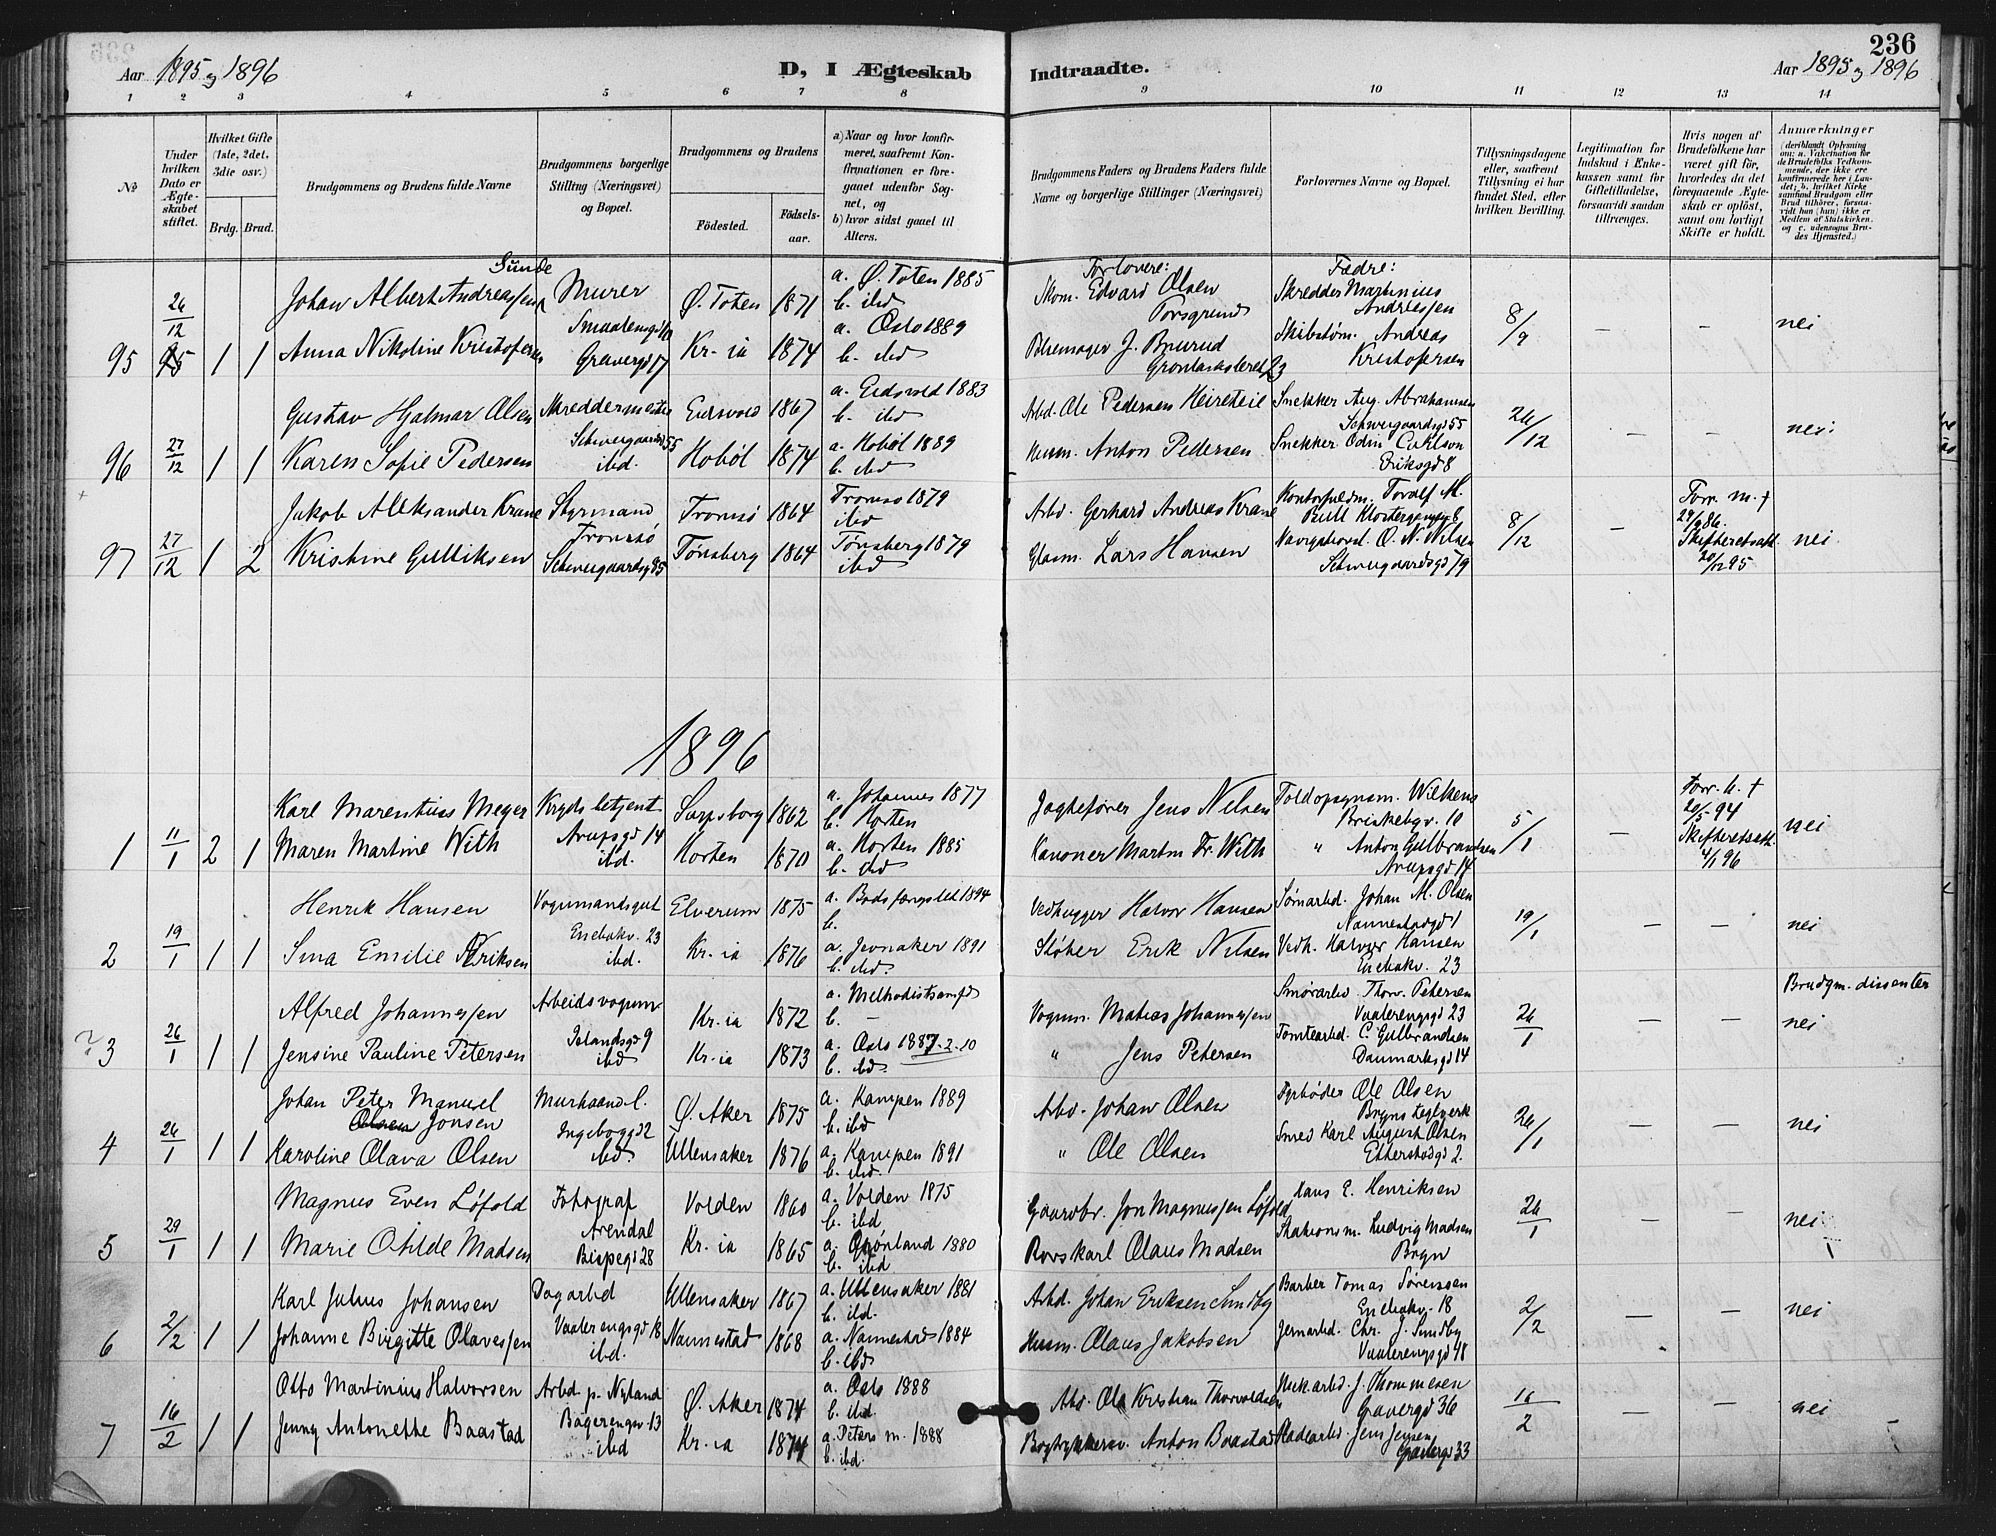 236
Aar 1895 og 1896
D, I Ægteskab Indtraadte.
Aar 1895 og 1896
1 2 3 4 5 6 7 8 9 10 11 12 13 14
№
Under hvilken Dato er Ægteskabet stiftet.
Hvilket Gifte (1ste, 2det, 3die osv.)
Brdg. Brud.
Brudgommens og Brudens fulde Navne
Brudgommens borgerlige Stilling (Næringsvei) og Bopæl.
Brudgommens og Brudens
Fødested. Fødselsaar.
a) Naar og hvor konfirmeret, saafremt Konfirmationen er foregaaet udenfor Sognet, og
b) hvor sidst gaaet til Alters.
Brudgommens Faders og Brudens Faders fulde Navne og borgerlige Stillinger (Næringsvei)
Forlovernes Navne og Bopæl.
Tillysningsdagene eller, saafremt Tillysning ei har fundet Sted, efter hvilken Bevilling.
Legitimation for Indskud i Enkekassen samt for Giftetilladelse, forsaavidt saadan tiltrænges.
Hvis nogen af Brudefolkene har været gift før, hvorledes da det foregaaende Ægteskab er opløst, samt om lovligt Skifte er holdt.
Anmærkninger (deriblandt Oplysning om: a. Vakcination for de Brudefolks Vedkommende, der ikke ere konfirmerede her i Landet; b. hvilket Kirkesamfund Brudgom eller Brud tilhører, forsaavidt han (hun) ikke er Medlem af Statskirken, og c. udensogns Brudes Hjemsted.)
Forlovere: Fædre:
95 26/12 95 1 1 Johan Albert Andreassen Sunde Murer Smaalensgd 10 Ø. Toten 1871 a. Ø. Toten 1885 b. ibd Skom. Edvard Olsen Porsgrund Skredder Martinius Andreassen 8/9 — — nei
Anna Nikoline Kristofersen Gravergd 17 Kr-ia 1874 a. Oslo 1889 b. ibd Grønlandsleret 23 Skibstøm. Andreas Kristofersen
96 27/12 1 1 Gustav Hjalmar Olsen Skreddermester Schweigaardsgd 55 Eidsvold 1867 a. Eidsvold 1883 b. ibd Arbd. Ole Pedersen Snekker Aug. Abrahamsen Schweigaardsgd 55 26/12 — — nei
Karen Sofie Pedersen ibd. Hobøl 1874 a. Hobøl 1889 b. ibd Husm. Anton Pedersen Snekker Odin Eriksgd 8
97 27/12 1 2 Jakob Aleksander Krane Styrmand Tromsø Tromsø 1864 Tromsø 1879 ibd Arbd. Gerhard Andreas Krane Kontorfuldm. Toralf M. Bull Klostergangen 8 8/12 — Forr. m. + 29/9 86. Skifteretsatt. 20/12 95 nei
Kristine Gulliksen Schweigaardsgd 95 Tønsberg 1864 Tønsberg 1879 ibd Glasm. Lars Hansen O. N. Nilsen Schweigaardsgd 79
1896
1 11/1 2 1 Karl Marentius Meyer Krydsbetjent Arupsgd 14 Sarpsborg 1862 a. Johannes 1877 b. Horten Jagtefører Jens Nilsen Toldopsynsm. Wilkens Briskebyv. 10 5/1 — Forr. h. + 20/5 94 Skifteretsatt. 4/1 96 nei
Maren Martine With ibd. Horten 1870 a. Horten 1885 b. ibd Kanoner Martin Fr. With " Anton Gulbrandsen Arupsgd 14
2 19/1 1 1 Henrik Hansen Vognmandsgut Enebakv. 23 Elverum 1875 a. Bodsfængslet 1894 b. Vedhugger Halvor Hansen Tømarbd. Johan M. Olsen Nannestadgd 1 19/1 — — nei
Sina Emilie Eriksen ibd. Kr-ia 1876 a. Jevnaker 1891 b. ibd. Støber Erik Nilsen Vedh. Halvor Hansen Enebakv. 23
3 26/1 1 1 Alfred Johannessen Arbeidsvognm Islandsgd 9 Kr-ia 1872 a. Methodistsamfd b. — Vognm. Matias Johannessen Smørarbd Thorv. Petersen Vaalerengsgd 23 26/1 — — Brudgm. dissenter nei
Jensine Pauline Petersen ibd Kr-ia 1873 a. Oslo 1887 b. ibd. " Jens Petersen Tomtearbd. C. Gulbrandsen Danmarksgd 14
4 26/1 1 1 Johan Peter Manuel Olsen Jonsen Murhaandl. Ingeborggd 2 Ø. Aker 1875 a. Kampen 1889 b. ibd Arbd. Johan Olsen Fyrbøder Ole Olsen Bryns teglverk 26/1 — — nei
Karoline Olava Olsen ibd. Ullensaker 1876 a. Kampen 1891 b. ibd. " Ole Olsen Smed Karl August Olsen Etterstadgd 2.
5 29/1 1 1 Magnus Even Løfold Fotograf Arendal Volden 1860 a. Volden 1875 b. ibd Gaardbr. Jon Magnussen Løfold Hans E. Henriksen 26/1 — — nei
Marie Otilde Madsen Bispegd 28 Kr-ia 1865 a. Grønland 1880 b. ibd Rorskarl Olaus Madsen Stationsm. Ludvig Madsen Bryn
6 2/2 1 1 Karl Julius Johansen Dagarbd Vaalerengsgd 18 Ullensaker 1867 a. Ullensaker 1881 b. ibd. Arbd. Johan Eriksen Sundby Barber Tomas Sørensen Enebakv. 18 2/2 — — nei
Johanne Birgitte Olavessen ibd. Nannestad 1868 a. Nannestad 1884 b. ibd Husm. Olaus Jakobsen Jernarbd. Chr. J. Sundby Vaalerengsgd 48
7 16/2 1 1 Otto Martinius Halvorsen Arbd p. Nyland Bøgerengsv. 13 Ø. Aker 1874 a. Oslo 1888 b. ibd. Arbd. Ole Kristian Thorvaldsen J. Thommesen Gravergd 36 16/2 — — nei
Jenny Antonette Baastad ibd Kr-ia 1874 a. Petars m. 1888 b. ibd. Bogtrykkersv. Anton Baastad Pladearbd. Jens Jensen Gravergd 33